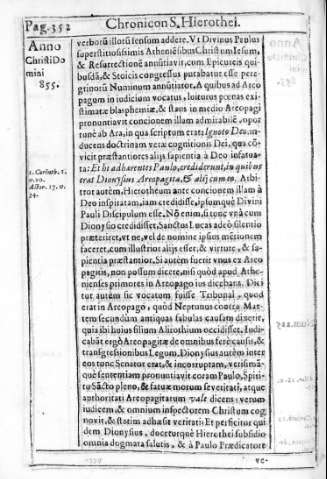 Pag. 352 Chronicon S. Hierothei.
Anno
Christi Do
mini
855.
verborũ illorũ sensum addere. Vt Divinus Paulus
superstitiosissimis Atheniẽsibus Christum Iesum,
& Resurrectionẽ annũtiavit, com Epicureis qui
busdã, & Stoicis congressus putabatur esse pere
grinorũ Numinum annũtiator. A quibus ad Areo
pagum in iudicium vocatus, luiturus pœnas exi
stimatæ blasphemiæ, & stans in medio Areopagi
pronuntiavit concionem illam admirabilẽ, opor
tunè ab Ara, in qua scriptum erat: Ignoto Deo,
ducens doctrinam veræ cognitionis Dei, qua cõ
vicit præstantiores alijs sapientia à Deo infatua
ta: Et hi adhærentes Paulo, crediderunt, in quibus
erat Dionysius Areopagita, & alij cum eo. Arbi-
tror autẽm, Hierotheum ante concionem illam à
Deo inspiratam, iam credidisse, ipsumque Divini
Pauli Discipulum esse. Nõ enim, si tunc vnà cum
Dionysio credidisset, Sanctus Lucas adeò silentio
præteriret, vt ne, vel de nomine ipsum mẽtionem
faceret, cum illustrior alijs esset, & virtute, & sa-
pientia præstantior. Si autẽm fuerit vnus ex Areo
pagitis, non possum dicere, nisi quòd apud Athe-
nienses primores in Areopago ius dicebant. Dici
tur autẽm sic vocatum fuisse Tribunal, quod
erat in Areopago, quòd Neptunus contra Mar-
tem secundùm antiquas fabulas causam dixerit,
quia ibi huius filium Alirothium occidisset. Iudi-
cabãt ergò Areopagitæ de omnibus ferè causis, &
transgressionibus Legum. Dionysius autẽm inter
eos tunc Senator erat, & incorruptam, verissimã-
que sententiam pronuntiavit coram Paulo, Spiri-
tu Sãcto pleno, & fatuæ morum severitati, atque
authoritati Areopagitarum vale dicens: verum
iudicem, & omnium inspectorem Christum cog
novit, & statim adhæsit veritati. Et perficitur qui
dem Dionysius, doceturquè Hierothei subsidio
omnia dogmata salutis, & à Paulo Prædicatore
1. Corinth. 1.
Actor. 17. v.
34.